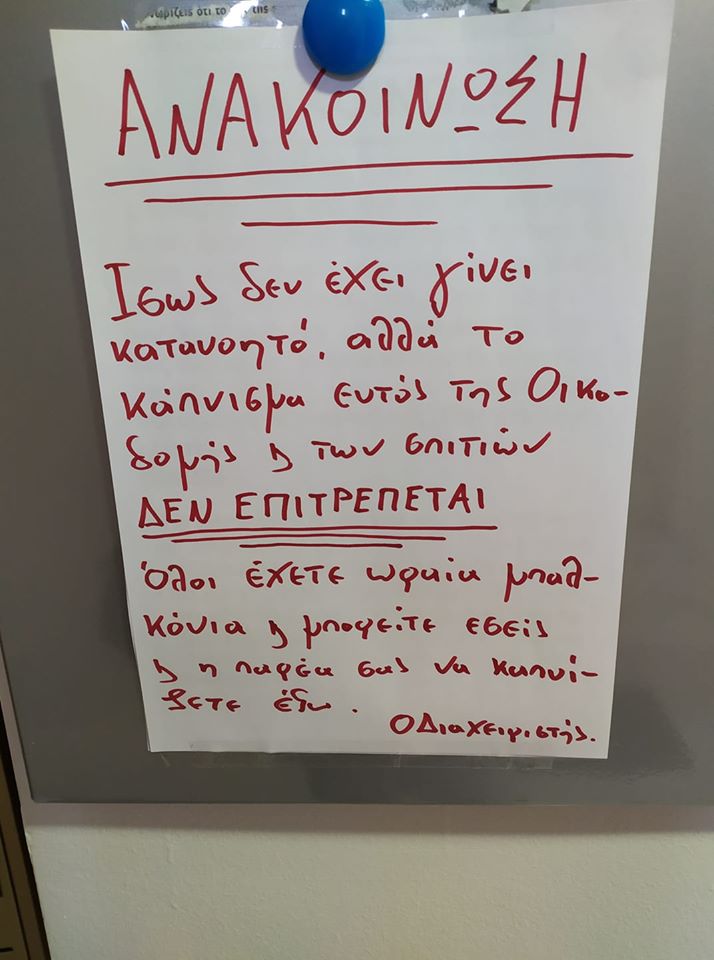 νωρίζεις ότι το
της
ΑΝΑΚΟΙΝΩΣΗ
Ισως δεν έχει γίνει
κατανοητό, αλλά το
κάπνισμα εντός της Οικο-
δομής ϗ των σπιτιών
ΔΕΝ ΕΠΙΤΡΕΠΕΤΑΙ
Όλοι έχετε ωραία μπαλ-
κόνια ϗ μπορείτε εσείς
ϗ η παρέα σας να καπνί-
ζετε έξω.
Ο Διαχειριστής.